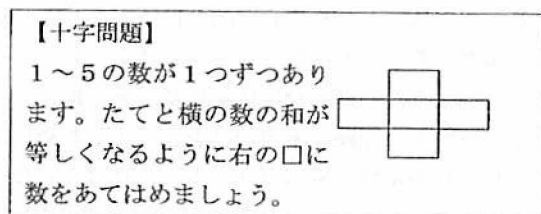 【十字問題】
1~5の数が1つずつあり
ます。たてと横の数の和が
等しくなるように右の□に
数をあてはめましょう。